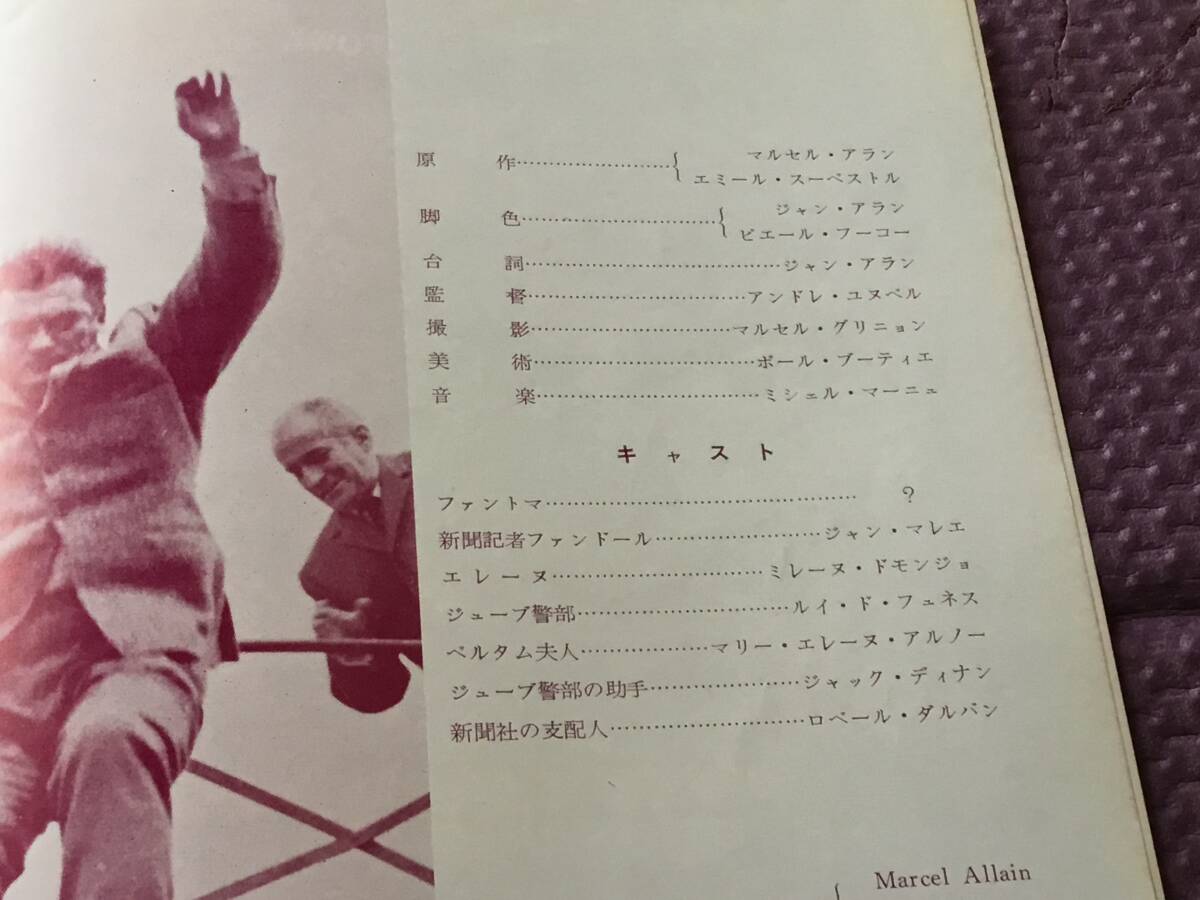 原作……………………{ マルセル・アラン
エミール・スーベストル
脚色…………………………{ ジャン・アラン
ピエール・フーコー
台詞…………………………………ジャン・アラン
監督……………………………アンドレ・ユヌベル
撮影…………………………マルセル・グリニョン
美術……………………………ポール・ブーティエ
音楽……………………………ミシェル・マーニュ
キャスト
ファントマ………………………………………？
新聞記者ファンドール……………………ジャン・マレエ
エレーヌ…………………………ミレーヌ・ドモンジョ
ジューブ警部…………………………ルイ・ド・フュネス
ベルタム夫人………………マリー・エレーヌ・アルノー
ジューブ警部の助手…………………ジャック・ディナン
新聞社の支配人………………………ロベール・ダルバン
{ Marcel Allain